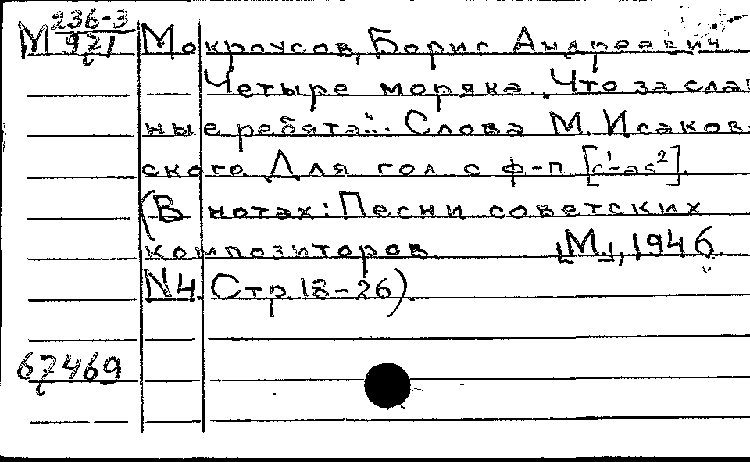 М 236-3
921
Мокроусов, Борис Андреевич
Четыре моряка. "Что за слав
ные ребята..." Слова М. Исаков-
ского. Для гол. с ф-п [c¹-as²].
(В нотах: Песни советских
композиторов. [М.], 1946.
N4. Стр. 18-26).
67469